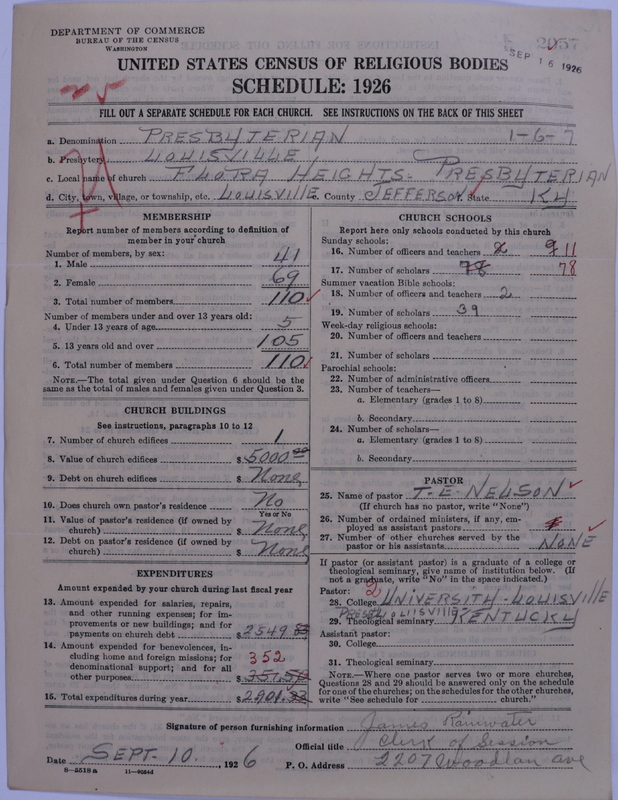 DEPARTMENT OF COMMERCE
BUREAU OF THE CENSUS
WASHINGTON
2057
SEP 16 1926
UNITED STATES CENSUS OF RELIGIOUS BODIES
SCHEDULE: 1926
FILL OUT A SEPARATE SCHEDULE FOR EACH CHURCH. SEE INSTRUCTIONS ON THE BACK OF THIS SHEET
a. Denomination PRESBYTERIAN 1-6-7
b. Presbytery LOUISVILLE
c. Local name of church FLORA HEIGHTS. PRESBYTERIAN
d. City, town, village, or township, etc. LOUISVILLE e. County JEFFERSON f. State KY
MEMBERSHIP
Report number of members according to definition of member in your church
Number of members, by sex:
1. Male 41
2. Female 69
3. Total number of members 110
Number of members under and over 13 years old:
4. Under 13 years of age 5
5. 13 years old and over 105
6. Total number of members 110
NOTE.—The total given under Question 6 should be the same as the total of males and females given under Question 3.
CHURCH BUILDINGS
See instructions, paragraphs 10 to 12
7. Number of church edifices 1
8. Value of church edifices $ 5000.00
9. Debt on church edifices $ None
10. Does church own pastor's residence No
Yes or No
11. Value of pastor's residence (if owned by church) $ None
12. Debt on pastor's residence (if owned by church) $ None
EXPENDITURES
Amount expended by your church during last fiscal year
13. Amount expended for salaries, repairs, and other running expenses; for improvements or new buildings; and for payments on church debt $ 2549
14. Amount expended for benevolences, including home and foreign missions; for denominational support; and for all other purposes $ 352
15. Total expenditures during year $ 2901.
CHURCH SCHOOLS
Report here only schools conducted by this church
Sunday schools:
16. Number of officers and teachers 11
17. Number of scholars 78 78
Summer vacation Bible schools:
18. Number of officers and teachers 2
19. Number of scholars 39
Week-day religious schools:
20. Number of officers and teachers
21. Number of scholars
Parochial schools:
22. Number of administrative officers
23. Number of teachers—
a. Elementary (grades 1 to 8)
b. Secondary
24. Number of scholars—
a. Elementary (grades 1 to 8)
b. Secondary
PASTOR
25. Name of pastor T. E. NELSON
(If church has no pastor, write "None")
26. Number of ordained ministers, if any, employed as assistant pastors
27. Number of other churches served by the pastor or his assistants NONE
If pastor (or assistant pastor) is a graduate of a college or theological seminary, give name of institution below. (If not a graduate, write "No" in the space indicated.)
Pastor: 2
28. College UNIVERSITY-LOUISVILLE
29. Theological seminary PRESBY LOUISVILLE KENTUCKY
Assistant pastor:
30. College
31. Theological seminary
NOTE.—Where one pastor serves two or more churches, Questions 28 and 29 should be answered only on the schedule for one of the churches; on the schedules for the other churches, write "See schedule for church."
Signature of person furnishing information James Rainwater
Official title Clerk of Session
Date SEPT. 10, 1926 P. O. Address 2207 Woodlan ave
8—5518a 11—9564d